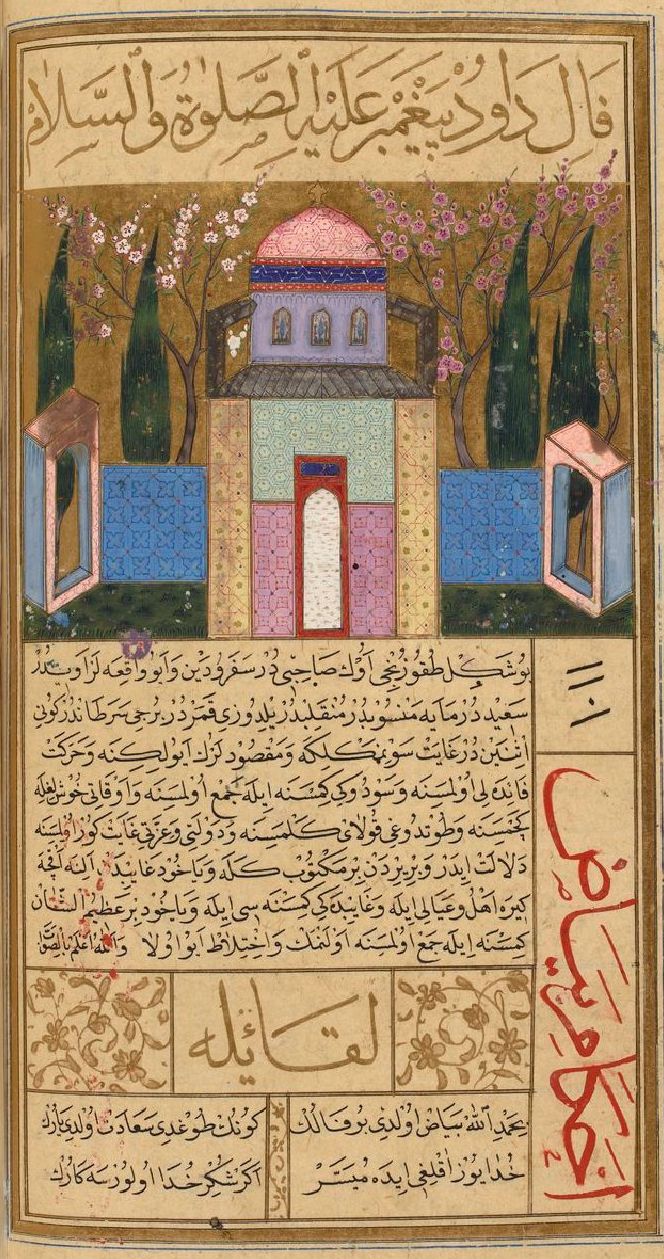 فال داود پیغمبر علیه الصلوة والسلام
بو شکل طقوزنجی اوک صاحبی در سفر و دین و ایو واقعه لر اویدر
سعید در مایه منسوبدر منقلبدر یلدوزی قمر در برجی سرطاندر کونی
اثنین در غایت سویمکلکه و مقصودلرک ایولکنه و حرکت
فائده لی اولمسنه و سودوکی کمسنه ایله جمع اولمسنه و اوقاتی خوشلغله
کچمسنه و طوتدوغی قولای کلمسنه و دولتی و عزتی غایت کوز اولمسنه
دلالت ایدر و بر یردن بر مکتوب کله ویا خود غایبدن النه اقچه
کیره اهل و عیالی ایله و غایبده کی کمسنه سی ایله ویا خود بر عظیم الشان
کمسنه ایله جمع اولمسنه اولنمک و اختلاط ایو اولا والله اعلم بالصواب
احکام بیاض
لقائله
بحمد الله بیاض اولدی بر فالک کونک طوغدی سعادت اولدی یارک
خدا یوز اقلغی ایده میسر اکر شکر خدا اولورسه کارک